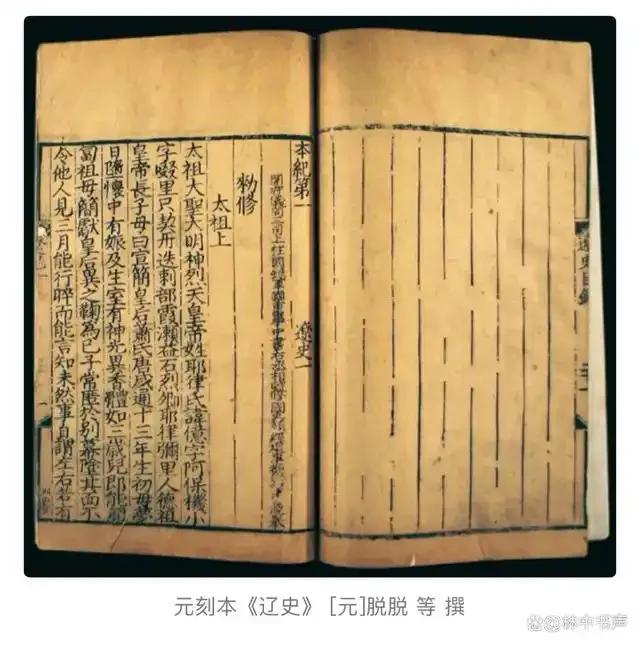 遼史目錄
本紀第一 遼史一
開府儀同三司上柱國錄軍國重事中書右丞相監修國史領經筵事
勑修
太祖上
太祖大聖大明神烈天皇帝姓耶律氏諱億字阿保機小
字啜里只契丹迭剌部霞瀨益石烈鄉耶律彌里人德祖
皇帝長子母曰宣簡皇后蕭氏唐咸通十三年生初母夢
日墮懷中有娠及生室有神光異香體如三歲兒即能匍
匐祖母簡獻皇后異之鞠為己子常匿於別幕塗其面不
令他人見三月能行晬而能言知未然事自謂左右若有
元刻本《辽史》 [元]脱脱 等 撰
@林中书声